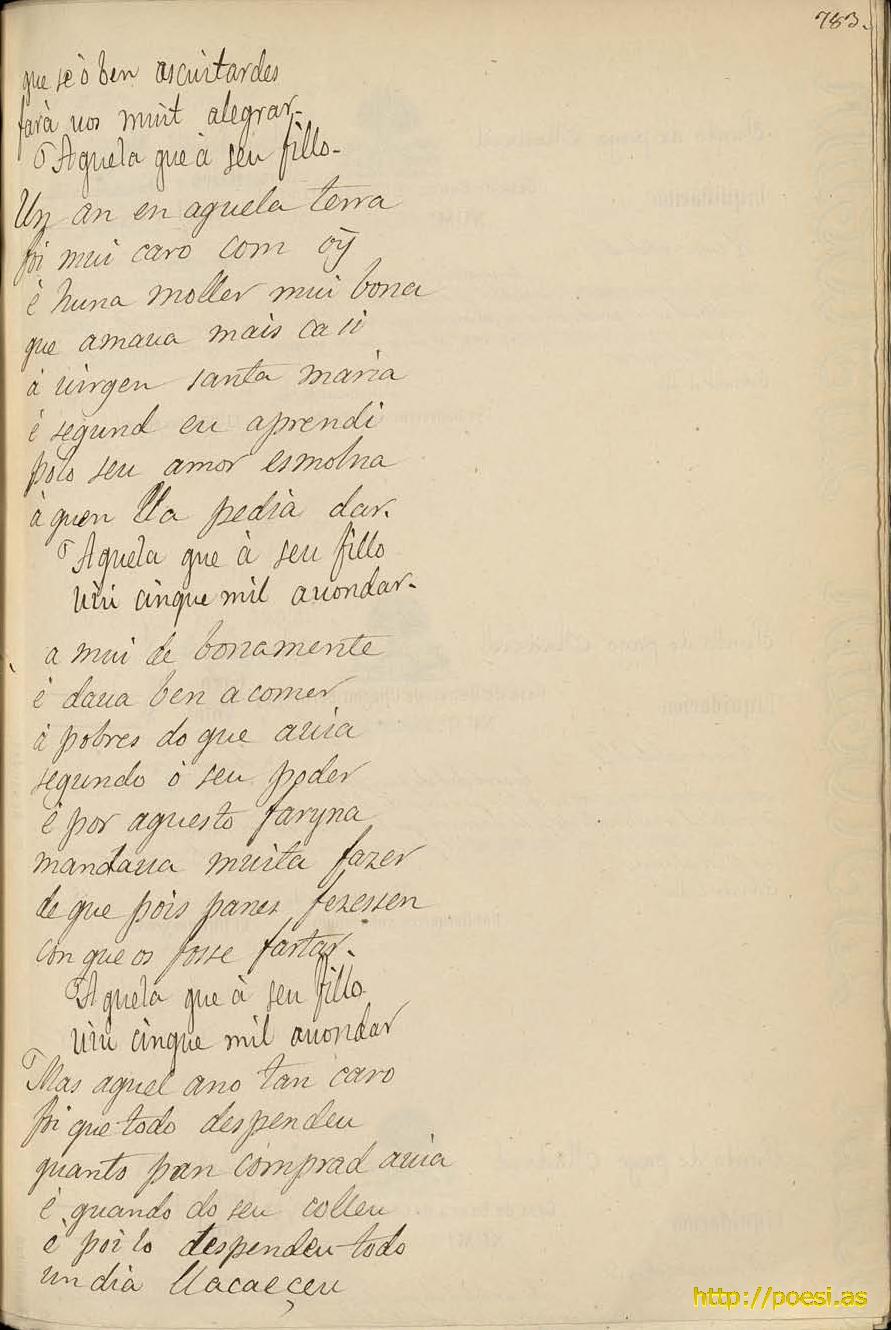 783.
que se ò ben ascuitardes
farà uos muit alegrar.
Aquela que à seu fillo.
Un an en aquela terra
foi mui caro com oý
é huna moller mui bona
que amaua mais ca si
á uirgen santa maria
é segund eu aprendi
polo seu amor esmolna
à quen lla pedià dar.
Aquela que à seu fillo
uiu cinque mil auondar.
a mui de bonamente
é daua ben a comer
à pobres do que auia
segundo ò seu poder
è por aquesto faryna
mandaua muita fazer
de que pois panes fezessen
con que os fosse fartar.
Aquela que à seu fillo
uiu cinque mil auondar
Mas aquel ano tan caro
foi que todo despendeu
quanto pan comprad auia
é quando do seu colleu
è poilo despendeu todo
un dia llacaeçeu
http://poesi.as